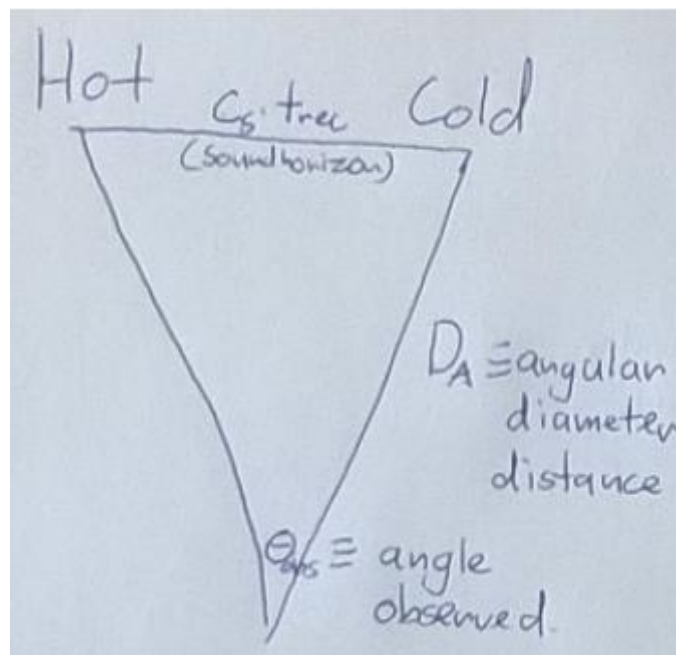 Hot Cold
Cs·trec
(Soundhorizon)
D_A ≡ angular
diameter
distance
Θobs ≡ angle
observed.